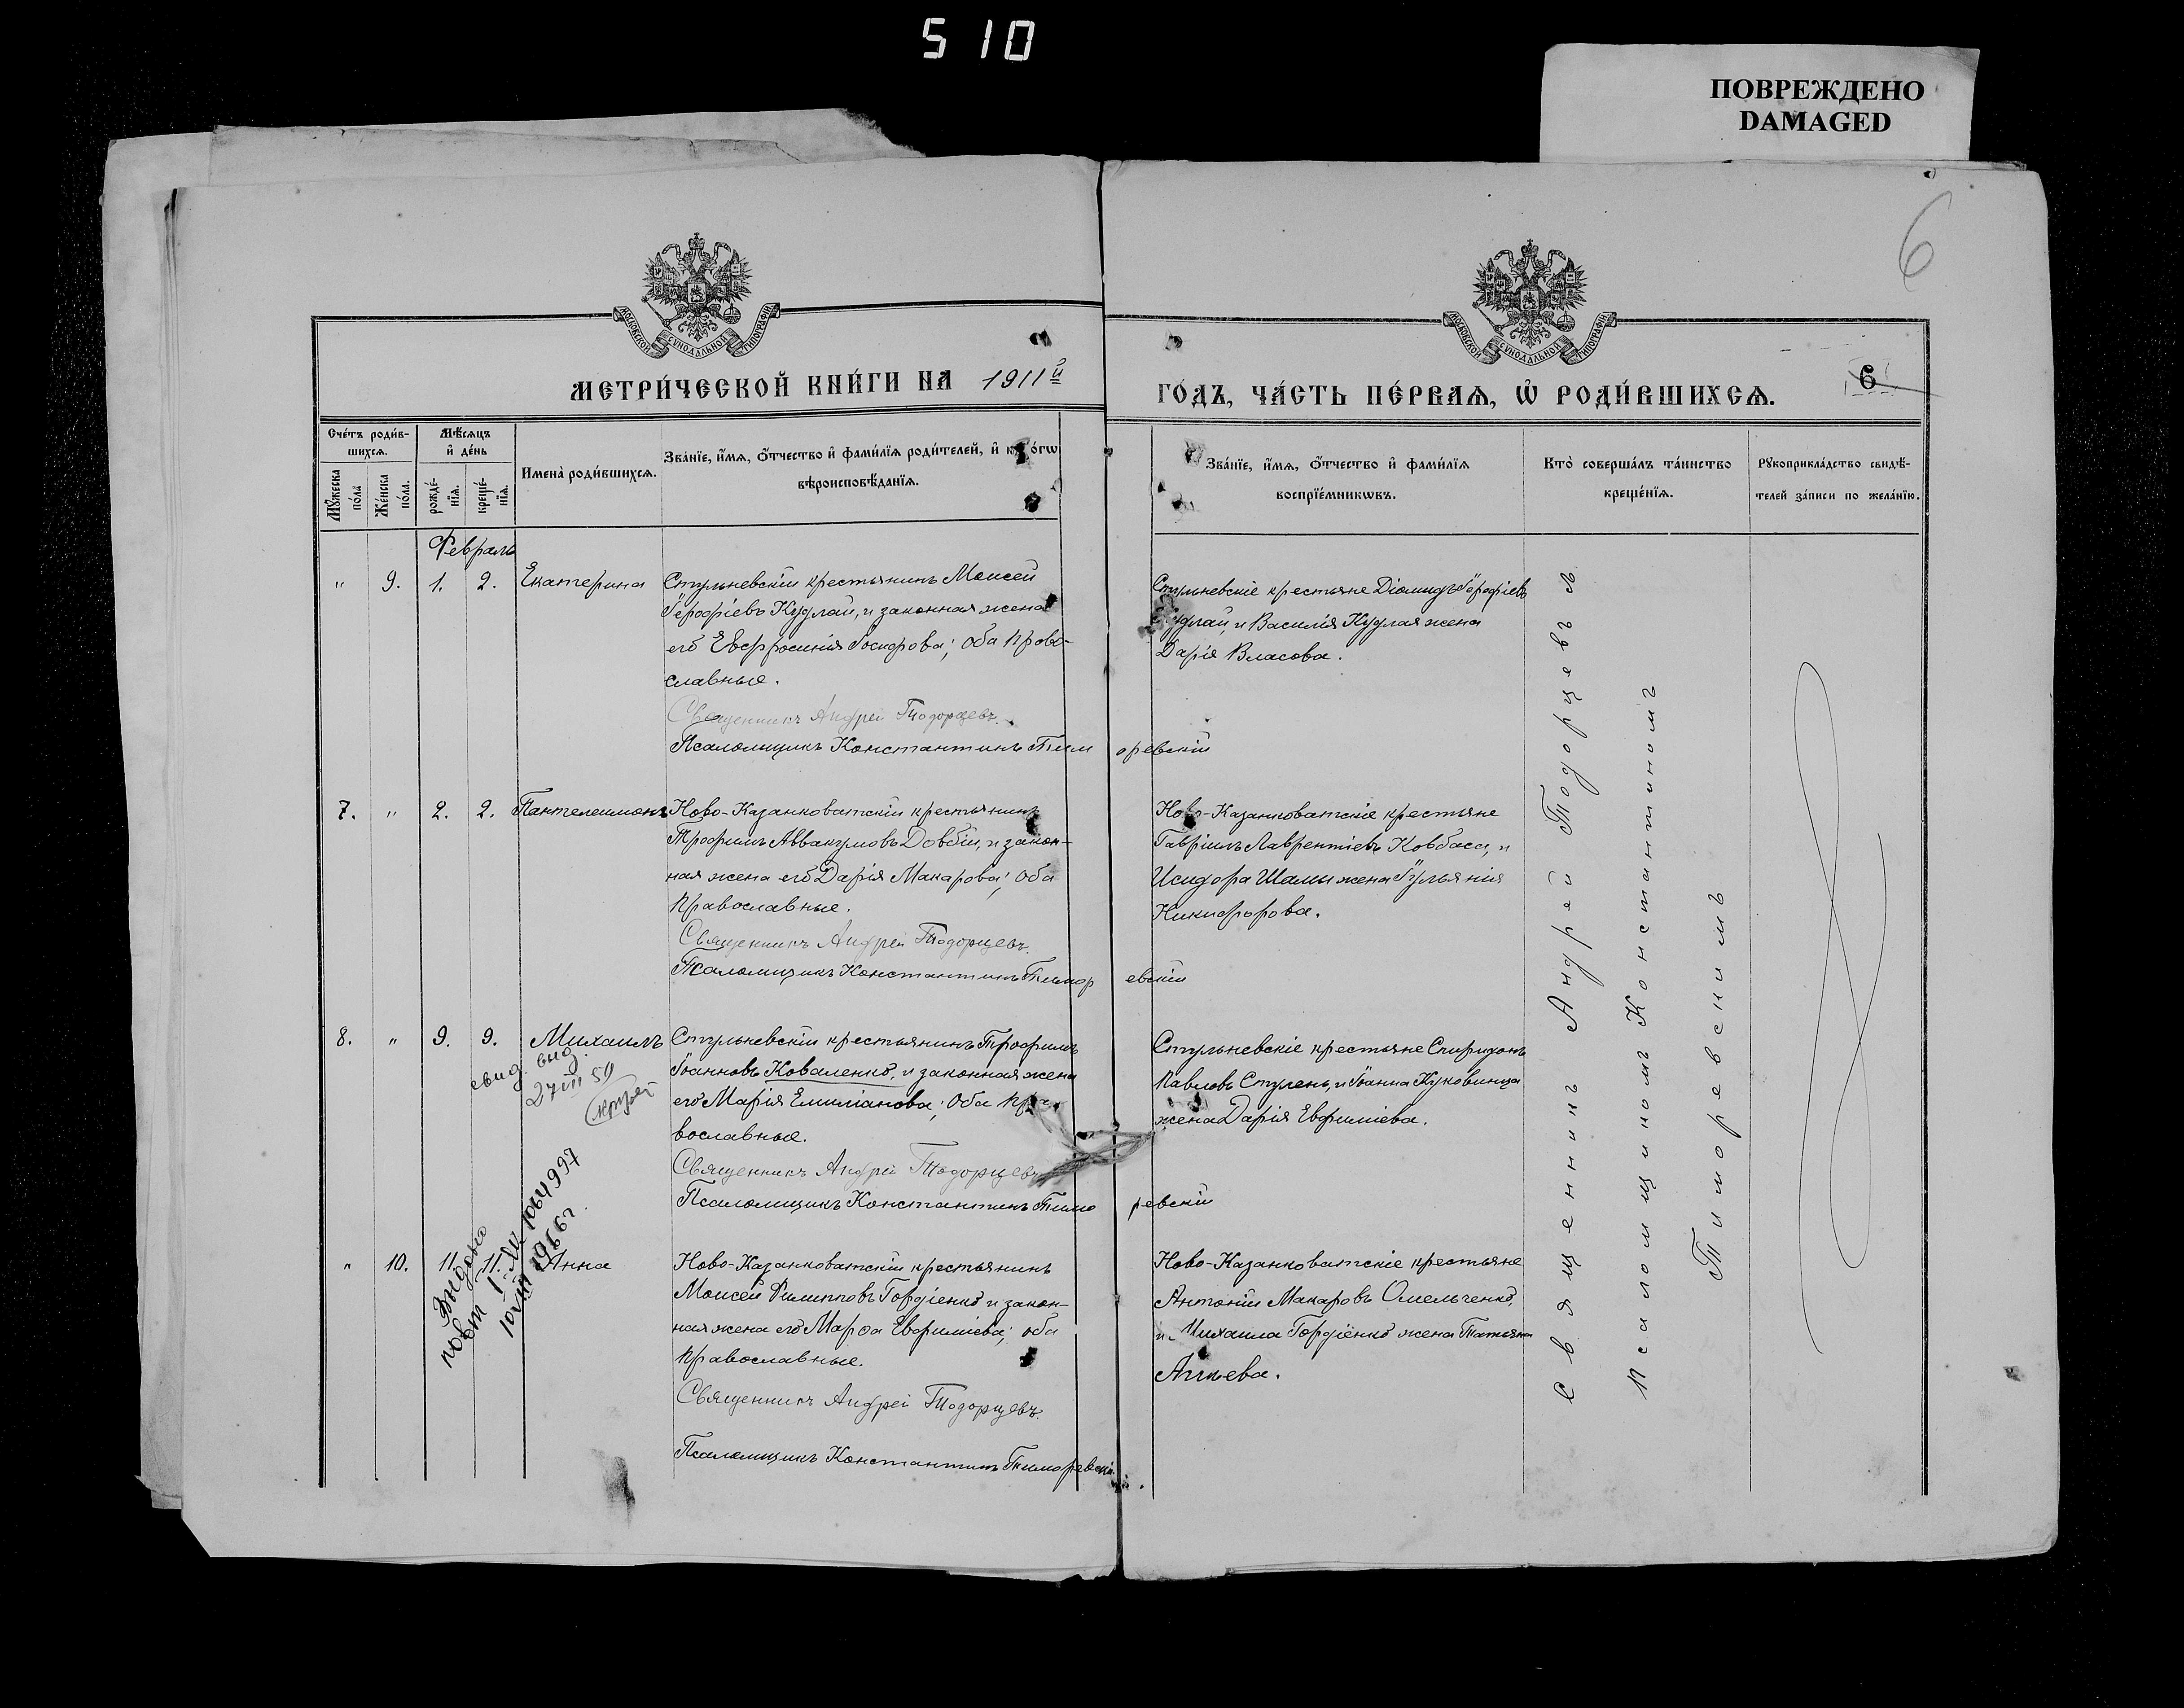 510
ПОВРЕЖДЕНО
DAMAGED
6
МОСКОВСКОЙ СѴНОДАЛЬНОЙ ТИПОГРАФІИ
МОСКОВСКОЙ СѴНОДАЛЬНОЙ ТИПОГРАФІИ
МЕТРИ́ЧЕСКОЙ КНИ́ГИ НА 1911й
ГО́ДЪ, ЧА́СТЬ ПЕ́РВАѦ, Ѡ҆ РОДИ́ВШИХСѦ.
6
Сче́тъ роди́в-
шихсѧ.
Мꙋ́жеска по́ла
Же́нска по́ла.
Мѣ́сѧцъ
и҆ де́нь
рожде́-
нїѧ.
креще́-
нїѧ.
Имена̀ роди́вшихсѧ.
Зва́нїе, и҆́мѧ, ѻ҆́тчество и҆ фами́лїѧ роди́телей, и҆ како́гѡ
вѣроисповѣ́данїѧ.
Зва́нїе, и҆́мѧ, ѻ҆́тчество и҆ фами́лїѧ
воспрїе́мникѡвъ.
Кто̀ соверша́лъ та́инство
креще́нїѧ.
Рꙋкоприкла́дство свидѣ́-
телей за́писи по жела́нїю.
Февраль
" 9. 1. 2. Екатерина
Стульневскій крестьянинъ Моисей
Іерофіевъ Кудлай, и законная жена
его Евфросинія Іосифова; оба право-
славные.
Священникъ Андрей Тодорцевъ.
Псаломщикъ Константинъ Тиморевскій
Стульневскіе крестьяне Діомидъ Іерофіевъ
Кудлай, и Василія Кудлая жена
Дарія Власова.
7. " 2. 2. Пантелеимонъ
Ново-Казанковатскій крестьянинъ
Трофимъ Аввакумовъ Довбій, и закон-
ная жена его Дарія Макарова; оба
православные.
Священникъ Андрей Тодорцевъ.
Псаломщикъ Константинъ Тиморевскій
Ново-Казанковатскіе крестьяне
Гавріилъ Лаврентіевъ Ковбаса, и
Исидора Шамы жена Іуліанія
Никифорова.
8. " 9. 9. Михаилъ
свид. выд.
27 VIII 50
Стульневскій крестьянинъ Трофимъ
Іоанновъ Коваленко, и законная жена
его Марія Емиліанова; оба пра-
вославные.
Священникъ Андрей Тодорцевъ
Псаломщикъ Константинъ Тиморевскій
Стульневскіе крестьяне Спиридонъ
Павловъ Ступень, и Іоанна Куковинца
жена Дарія Евфиміева.
" 10. 11. 11. Анна
Выдано
повт
№ 1064997
1966г.
Ново-Казанковатскій крестьянинъ
Моисей Филипповъ Гордіенко и закон-
ная жена его Марфа Евфиміева; оба
православные.
Священникъ Андрей Тодорцевъ.
Псаломщикъ Константинъ Тиморевскій.
Ново-Казанковатскіе крестьяне
Антоній Макаровъ Омельченко,
и Михаила Гордіенко жена Татьяна
Священникъ Андрей Тодорцевъ
Псаломщикомъ Константиномъ
Тиморевскимъ